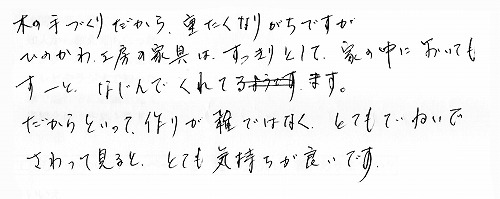 木の手づくりだから、重たくなりがちですが
ひのかわ工房の家具は、すっきりとして、家の中においても
すーと、なじんでくれてます。
だからといって、作りが雑ではなく、とてもていねいで
さわって見ると、とても気持ちが良いです。